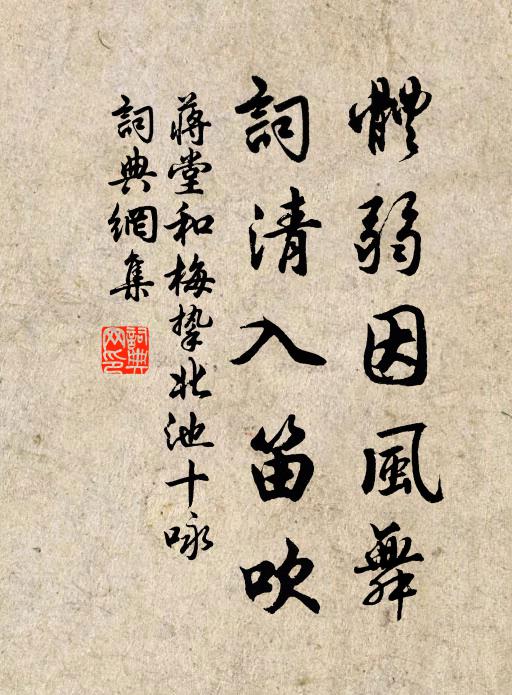 體弱因風舞
詞清入笛吹
蔣堂和梅摯北池十咏
詞典網集
詞典網印